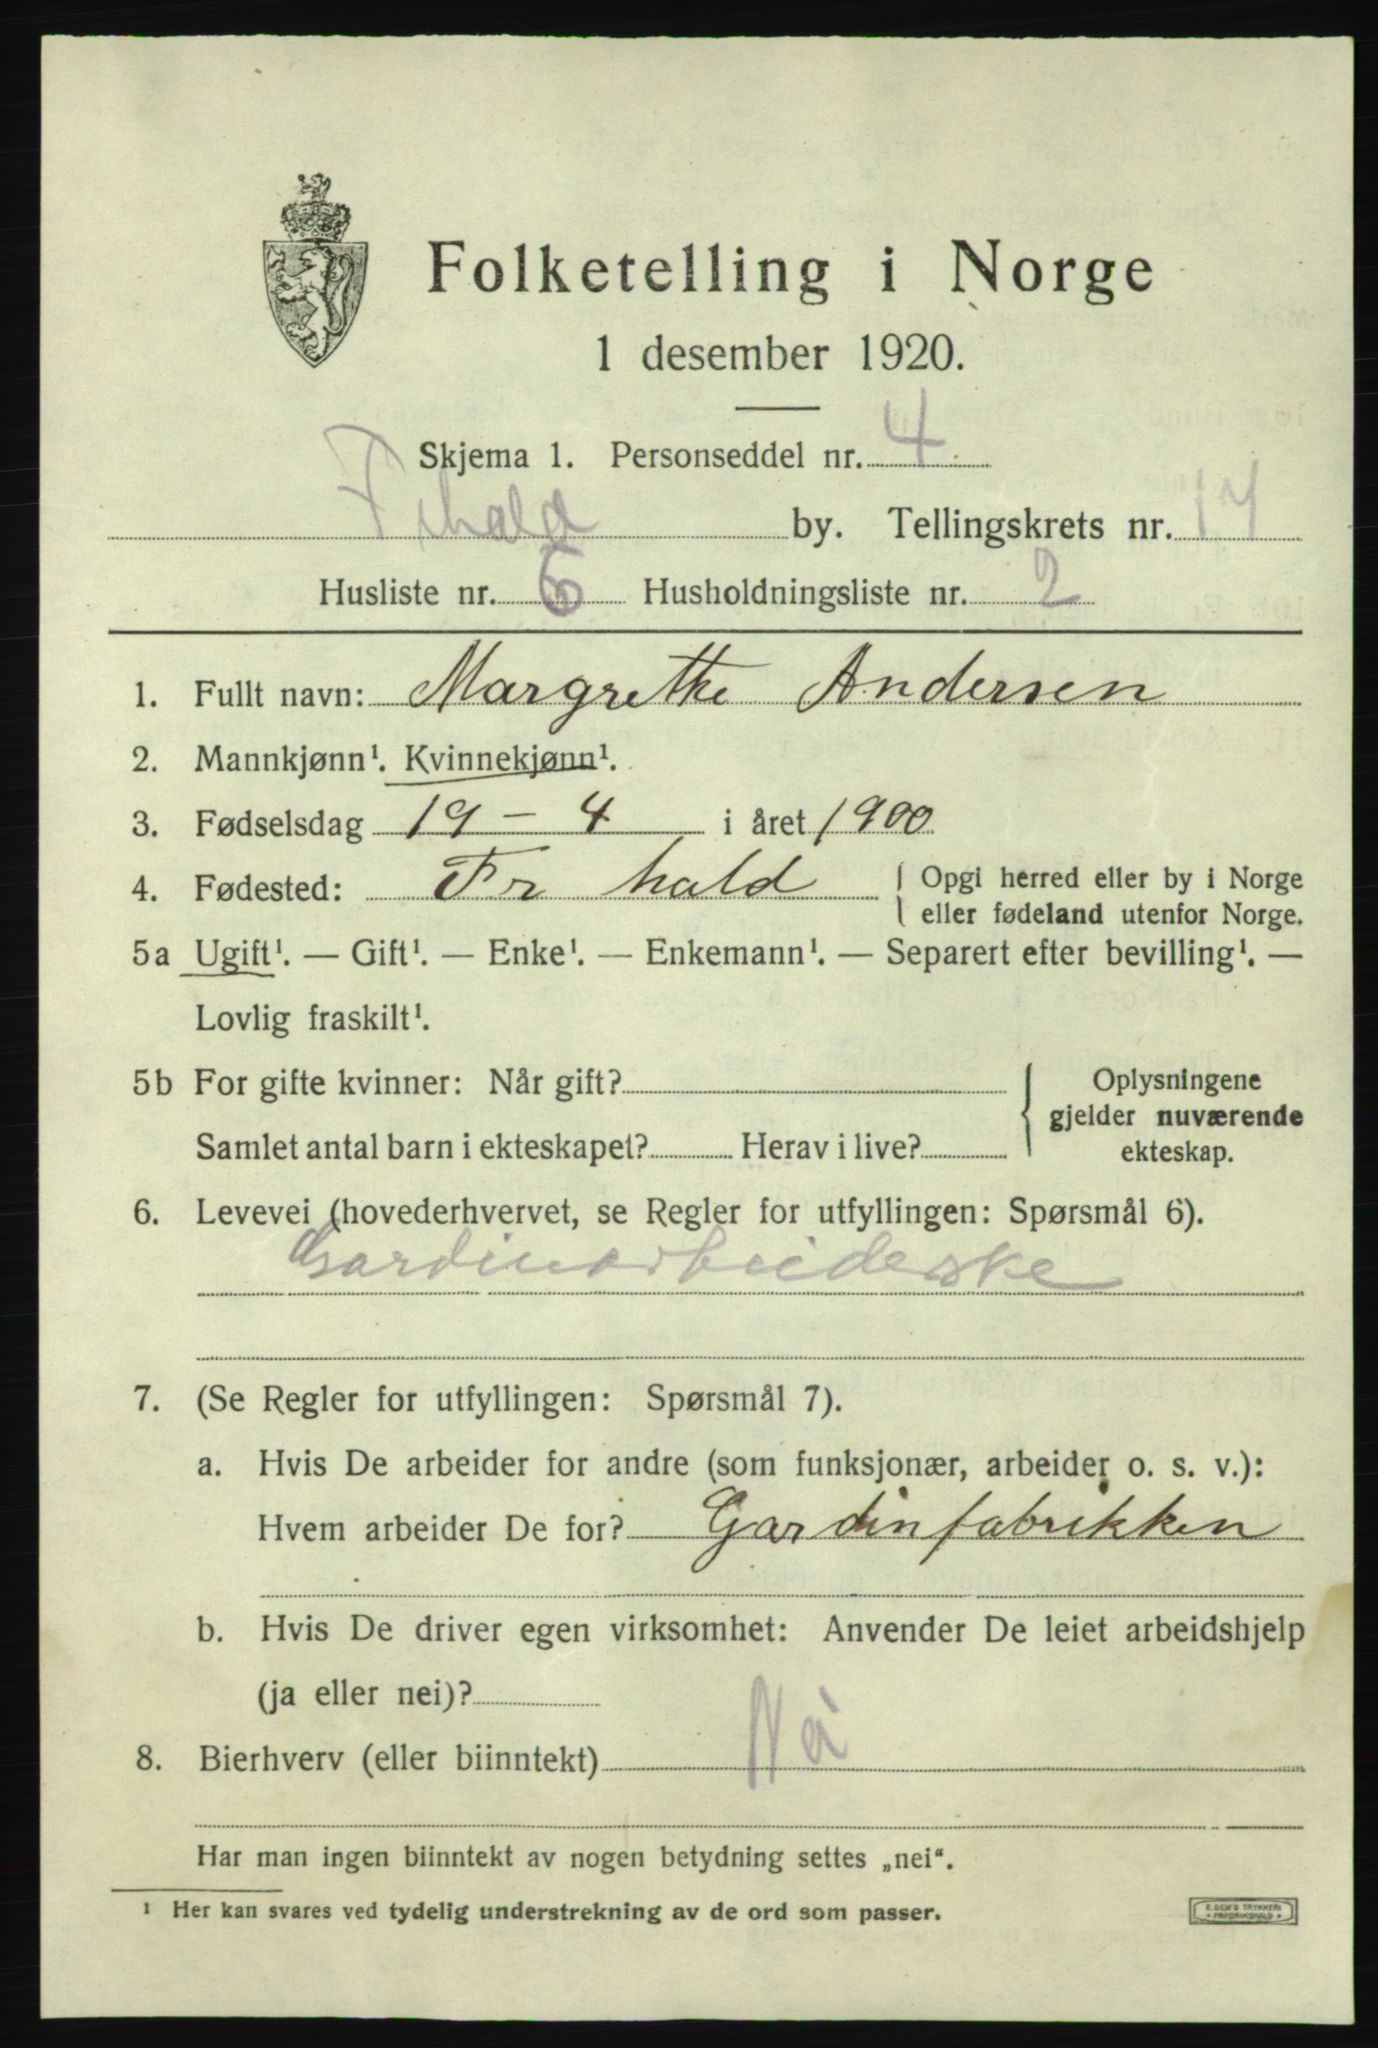 Folketelling i Norge
1 desember 1920.
Skjema 1. Personseddel nr. 4
Fhald by. Tellingskrets nr. 17
Husliste nr. 6 Husholdningsliste nr. 2
1. Fullt navn: Margrethe Andersen
2. Mannkjønn¹. Kvinnekjønn¹.
3. Fødselsdag 19 - 4 i året 1900
4. Fødested: Fr hald { Opgi herred eller by i Norge
eller fødeland utenfor Norge.
5a Ugift¹. — Gift¹. — Enke¹. — Enkemann¹. — Separert efter bevilling¹. —
Lovlig fraskilt¹.
5b For gifte kvinner: Når gift? { Oplysningene
gjelder nuværende
Samlet antal barn i ekteskapet? Herav i live? ekteskap.
6. Levevei (hovederhvervet, se Regler for utfyllingen: Spørsmål 6).
Gardinarbeiderske
7. (Se Regler for utfyllingen: Spørsmål 7).
a. Hvis De arbeider for andre (som funksjonær, arbeider o. s. v.):
Hvem arbeider De for? Gardinfabrikken
b. Hvis De driver egen virksomhet: Anvender De leiet arbeidshjelp
(ja eller nei)?
8. Bierhverv (eller biinntekt)
Har man ingen biinntekt av nogen betydning settes „nei“.
¹ Her kan svares ved tydelig understrekning av de ord som passer.
E. SEM'S TRYKKERI
FREDRIKSHALD